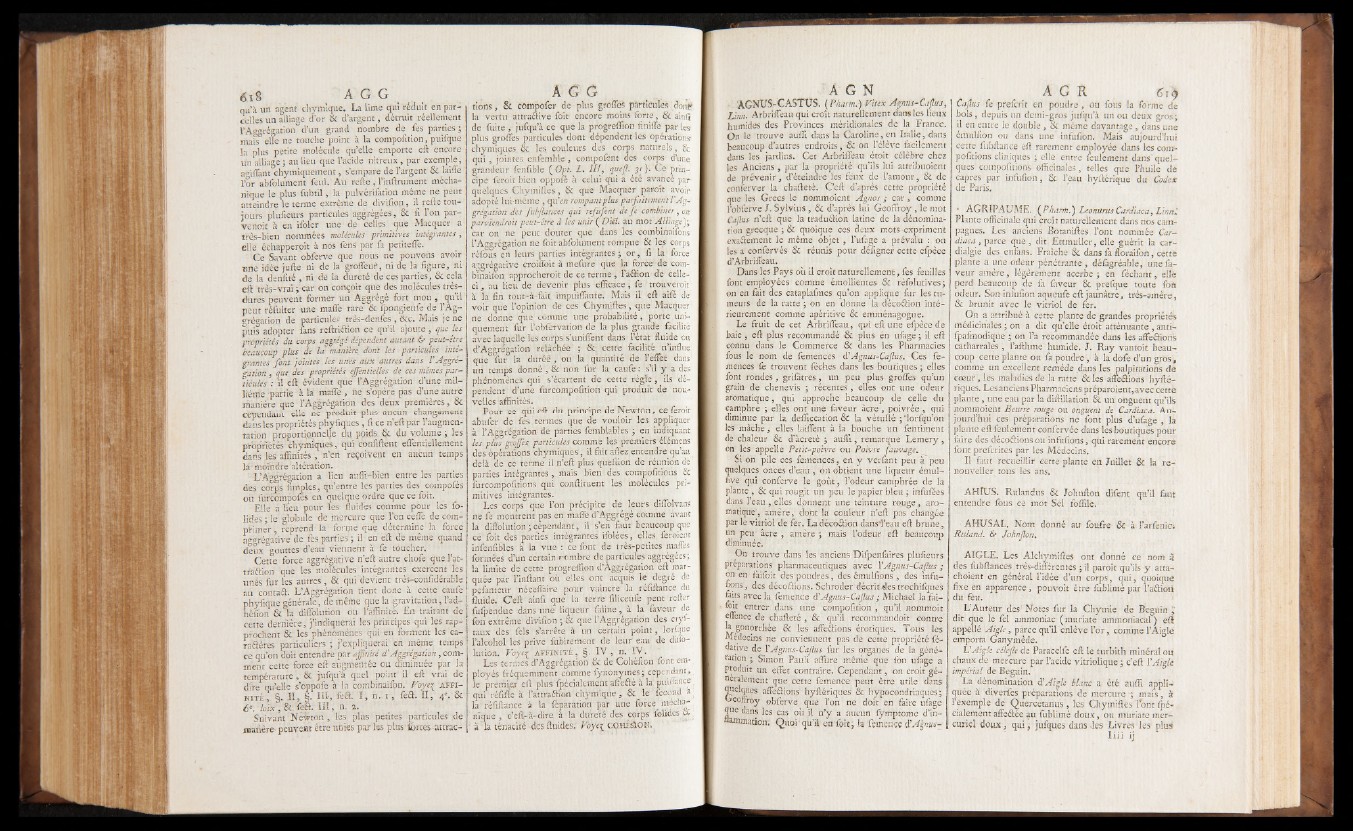 618 A G G
qu'à un agent chymique. La lime qui réduit en par-
celles un alliage d'or & d'argent, détruit réellement
l'Aggrégation d'un grand nombre de ses parties ;
mais elle ne touche point à la composition, puisque
la plus petite molécule qu'elle emporte est encore
un alliage ; au lieu que l'acide nitreux, par exemple,
agissant chymiquement, s'empare de l'argent & laisse
l'or absolument seul. Au reste, l'instrument mécha-
nique le plus subtil, la pulvérisation même ne peut
atteindre le terme extrême de division, il reste tou-
jours plusieurs particules aggrégées, & si l'on par-
venoit à en isoler une de celles que Macquer a
très-bien nommées molécules primitives intégrantes,
elle échapperoit à nos sens par sa petitesse.
Ce Savant observe que nous ne pouvons avoir
une idée juste ni de la grosseur, ni de la figure, ni
de la densité, ni de la dureté de ces parties, & cela
est très-vrai ; car on conçoit que des molécules très-
dures peuvent former un Aggrégé fort mou, qu'il
peut résulter une masse rare & spongieuse de l'Ag-
grégation de particules très-denses, &c. Mais je ne
puis adopter sans restriction ce qu'il ajoute, que les
propriétés du corps aggrégé dépendent autant & peut-être
beaucoup plus de la manière dont les particules inté-
grantes sont jointes les unes aux autres dans l'Aggré-
gation, que des propriétés essentielles de ces mêmes par-
ticules : il est évident que l'Aggrégation d'une mil-
lième partie à la masse, ne s'opère pas d'une autre
manière que l'Aggrégation des deux premières, &
cependant elle ne produit plus aucun changement
dans les propriétés physiques, si ce n'est par l'augmen-
tation proportionnelle du poids & du volume ; les
propriétés chymiques, qui consistent essentiellement
dans les affinités, n'en reçoivent en aucun temps
la moindre altération.
L'Aggrégation a lieu aussi-bien entre les parties
des corps simples, qu'entre les parties des composés
ou surcomposés en quelque ordre que ce soit.
Elle a lieu pour les fluides comme pour les so-
lides ; le globule de mercure que l'on cesse de com-
primer, reprend la forme que détermine la force
aggrégative de ses parties ; il en est de même quand
deux gouttes d'eau viennent à se toucher.
Cette force aggrégative n'est autre chose que l'at-
traction que les molécules intégrantes exercent les
unes sur les autres, & qui devient très-considérable
au contact. L'Aggrégation tient donc à cette cause
physique générale, de même que la gravitation, l'ad-
hésion & la dissolution ou l'affinité. En traitant de
cette dernière, j'indiquerai les principes qui les rap-
prochent & les phénomènes qui en forment les ca-
ractères particuliers ; j'expliquerai en même temps
ce qu'on doit entendre par affinité d'Aggrégation, com-
ment cette force est augmentée ou diminuée par la
température, & jusqu'à quel point il est vrai de
dire qu'elle s'oppose à la combinaison. Voyez AFFI-
NITÉ, §. II, §. III, sect. I, n. 1, sect. II, 4°. &
6e. loix, & sect. III, n. 2.
Suivant Newton, les plus petites particules de
matière peuvent être unies par les plus fortes attrac-
A G G
tions, & composer de plus grosses particules dont
la vertu attractive soit encore moins forte, & ainsi
de suite, jusqu'à ce que la progression finisse par les
plus grosses particules dont dépendent les opérations
chymiques & les couleurs des corps naturels, &
qui, jointes ensemble, composent des corps d'une
grandeur sensible ( Opt. L. III, quest. 31 ). Ce prin-
cipe seroit bien opposé à celui qui a été avancé par
quelques Chymistes, & que Macquer paroît avoir
adopté lui-même, qu'en rompant plus parfaitement l'Ag-
grégation des substances qui refusent de se combiner, on
parviendroit peut-être à les unir ( Dict. au mot Alliage ) ;
car on ne peut douter que dans les combinaisons
l'Aggrégation ne soit absolument rompue & les corps
résous en leurs parties intégrantes ; or, si la force
aggrégative croissoit à mesure que la force de com-
binaison approcheroit de ce terme, l'action de celle-
ci, au lieu de devenir plus efficace, se trouveroit
à la fin tout-à-fait impuissante. Mais il est aisé de
voir que l'opinion de ces Chymistes, que Macquer
ne donne que comme une probabilité, porte uni-
quement sur l'observation de la plus grande facilité
avec laquelle les corps s'unissent dans l'état fluide ou
d'Aggrégation relâchée ; & cette facilité n'influe
que sur la durée, ou la quantité de l'effet dans
un temps donné, & non sur la cause : s'il y a des
phénomènes qui s'écartent de cette règle, ils dé-
pendent d'une surcomposition qui produit de nou-
velles affinités.
Pour ce qui est du principe de Newton, ce seroit
abuser de ses termes que de vouloir les appliquer
à l'Aggrégation de parties semblables ; en indiquant
les plus grosses particules comme les premiers élémens
des opérations chymiques, il fait assez entendre qu'au
delà de ce terme il n'est plus question de réunion de
parties intégrantes, mais bien des compositions &
surcompositions qui constituent les molécules pri-
mitives intégrantes.
Les corps que l'on précipite de leurs dissolvans
ne se montrent pas en masse d'Aggrégé comme avant
la dissolution ; cependant, il s'en faut beaucoup que
ce soit des parties intégrantes isolées, elles seroient
insensibles à la vue : ce sont de très-petites masses
formées d'un certain nombre de particules aggrégées ;
la limite de cette progression d'Aggrégation est mar-
quée par l'instant où elles ont acquis le degré de
pesanteur nécessaire pour vaincre la résistance du
fluide. C'est ainsi que la terre siliceuse peut rester
suspendue dans une liqueur saline, à la faveur de
son extrême division ; & que l'Aggrégation des crys-
taux des sels s'arrête à un certain point, lorsque
l'alcohol les prive subitement de leur eau de disso-
lution. Voyez AFFINITÉ, §. IV, n. IV.
Les termes d'Aggrégation & de Cohésion sont em-
ployés fréquemment comme synonymes ; cependant,
le premier est plus spécialement affecté à la puissance
qui résiste à l'attraction chymique, & le second à
la résistance à la séparation par une force mécha-
nique, c'est-à-dire à la dureté des corps solides &
à la ténacité des fluides. Voyez COHÉSION.
A G N
AGNUS-CASTUS. ( Pharm. ) Vitex Agnus-Castus,
Linn. Arbrisseau qui croît naturellement dans les lieux
humides des Provinces méridionales de la France.
On le trouve aussi dans la Caroline, en Italie, dans
beaucoup d'autres endroits, & on l'élève facilement
dans les jardins. Cet Arbrisseau étoit célèbre chez
les Anciens, par la propriété qu'ils lui attribuoient
de prévenir, d'éteindre les feux de l'amour, & de
conserver la chasteté. C'est d'après cette propriété
que les Grecs le nommoient Agnos ; car, comme
l'observe J. Sylvius, & d'après lui Geoffroy, le mot
Castus n'est que la traduction latine de la dénomina-
tion grecque ; & quoique ces deux mots expriment
exactement le même objet, l'usage a prévalu : on
les a conservés & réunis pour désigner cette espèce
d'Arbrisseau.
Dans les Pays où il croît naturellement, ses feuilles
sont employées comme émollientes & résolutives ;
on en fait des cataplasmes qu'on applique sur les tu-
meurs de la ratte ; on en donne la décoction inté-
rieurement comme apéritive & emménagogue.
Le fruit de cet Arbrisseau, qui est une espèce de
baie, est plus recommandé & plus en usage ; il est
connu dans le Commerce & dans les Pharmacies
sous le nom de semences d'Agnus-Castus. Ces se-
mences se trouvent sèches dans les boutiques ; elles
sont rondes, grisâtres, un peu plus grosses qu'un
grain de chenevis ; récentes, elles ont une odeur
aromatique, qui approche beaucoup de celle du
camphre ; elles ont une saveur âcre, poivrée, qui
diminue par la dessiccation & la vétusté ; lorsqu'on
les mâche, elles laissent à la bouche un sentiment
de chaleur & d'âcreté ; aussi, remarque Lemery,
on les appelle Petit-poivre ou Poivre sauvage.
Si on pile ces semences, en y versant peu à peu
quelques onces d'eau, on obtient une liqueur émul-
sive qui conserve le goût, l'odeur camphrée de la
plante, & qui rougit un peu le papier bleu ; infusées
dans l'eau, elles donnent une teinture rouge, aro-
matique, amère, dont la couleur n'est pas changée
par le vitriol de fer. La décoction dans l'eau est brune,
un peu âcre, amère ; mais l'odeur est beaucoup
diminuée.
On trouve dans les anciens Dispensaires plusieurs
préparations pharmaceutiques avec l'Agnus-Castus ;
on en faisoit des poudres, des émulsions, des infu-
sions, des décoctions. Schroder décrit des trochisques
faits avec la semence d'Agnus-Castus ; Michael la fai-
soit entrer dans une composition, qu'il nommoit
essence de chasteté, & qu'il recommandoit contre
la gonorrhée & les affections érotiques. Tous les
Médecins ne conviennent pas de cette propriété sé-
dative de l'Agnus-Castus sur les organes de la géné-
ration ; Simon Pauli assure même que son usage a
produit un effet contraire. Cependant, on croit gé-
néralement que cette semence peut être utile dans
quelques affections hystériques & hypocondriaques ;
Geoffroy observe que l'on ne doit en faire usage
que dans les cas où il n'y a aucun symptome d'in-
flammation. Quoi qu'il en soit, la semence d'Agnus-
A G R 619
Castus se prescrit en poudre, ou sous la forme de
bols, depuis un demi-gros jusqu'à un ou deux gros ;
il en entre le double, & même davantage, dans une
émulsion ou dans une infusion. Mais aujourd'hui
cette substance est rarement employée dans les com-
positions cliniques ; elle entre seulement dans quel-
ques compositions officinales, telles que l'huile de
capres par infusion, & l'eau hystérique du Codex
de Paris.
AGRIPAUME. ( Pharm. ) Leonurus Cardiaca, Linn.
Plante officinale qui croît naturellement dans nos cam-
pagnes. Les anciens Botanistes l'ont nommée Car-
diaca, parce que, dit Ettmuller, elle guérit la car-
dialgie des enfans. Fraîche & dans sa floraison, cette
plante a une odeur pénétrante, désagréable, une sa-
veur amère, légèrement acerbe ; en séchant, elle
perd beaucoup de sa saveur & presque toute son
odeur. Son infusion aqueuse est jaunâtre, très-amère,
& brunit avec le vitriol de fer.
On a attribué à cette plante de grandes propriétés
médicinales ; on a dit qu'elle étoit atténuante, anti-
spasmodique ; on l'a recommandée dans les affections
catharrales, l'asthme humide. J. Ray vantoit beau-
coup cette plante ou sa poudre, à la dose d'un gros,
comme un excellent remède dans les palpitations de
cœur, les maladies de la ratte & les affections hysté-
riques. Les anciens Pharmaciens préparoient, avec cette
plante, une eau par la distillation & un onguent qu'ils
nommoient Beurre rouge ou onguent de Cardiaca. Au-
jourd'hui ces préparations ne sont plus d'usage, la
plante est seulement conservée dans les boutiques pour
faire des décoctions ou infusions, qui rarement encore
sont prescrites par les Médecins.
Il faut recueillir cette plante en Juillet & la re-
nouveller tous les ans.
AHIUS. Rulandus & Johnston disent qu'il faut
entendre sous ce mot Sel fossile.
AHUSAL. Nom donné au soufre & à l'arsenic.
Ruland. & Johnston.
AIGLE. Les Alchymistes ont donné ce nom à
des substances très-différentes ; il paroît qu'ils y atta-
choient en général l'idée d'un corps, qui, quoique
fixe en apparence, pouvoit être sublimé par l'action
du feu.
L'Auteur des Notes sur la Chymie de Beguin,
dit que le sel ammoniac (muriate ammoniacal) est
appellé Aigle, parce qu'il enlève l'or, comme l'Aigle
emporta Ganymède.
L'Aigle céleste de Paracelse est le turbith minéral ou
chaux de mercure par l'acide vitriolique ; c'est l'Aigle
impérial de Beguin.
La dénomination d'Aigle blanc a été aussi appli-
quée à diverses préparations de mercure ; mais, à
l'exemple de Quercetanus, les Chymistes l'ont spé-
cialement affectée au sublimé doux, ou muriate mer-
curiel doux, qui, jusques dans les Livres les plus
Iiii ij